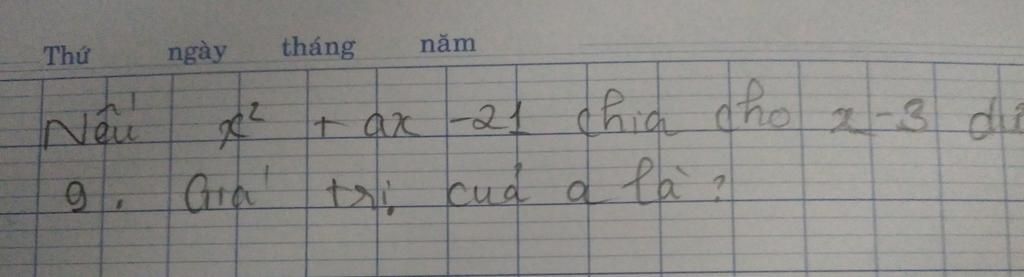 Thứ ngày tháng năm
Nếu x² + ax - 21 chia cho x - 3 dư
9. Giá trị của a là?